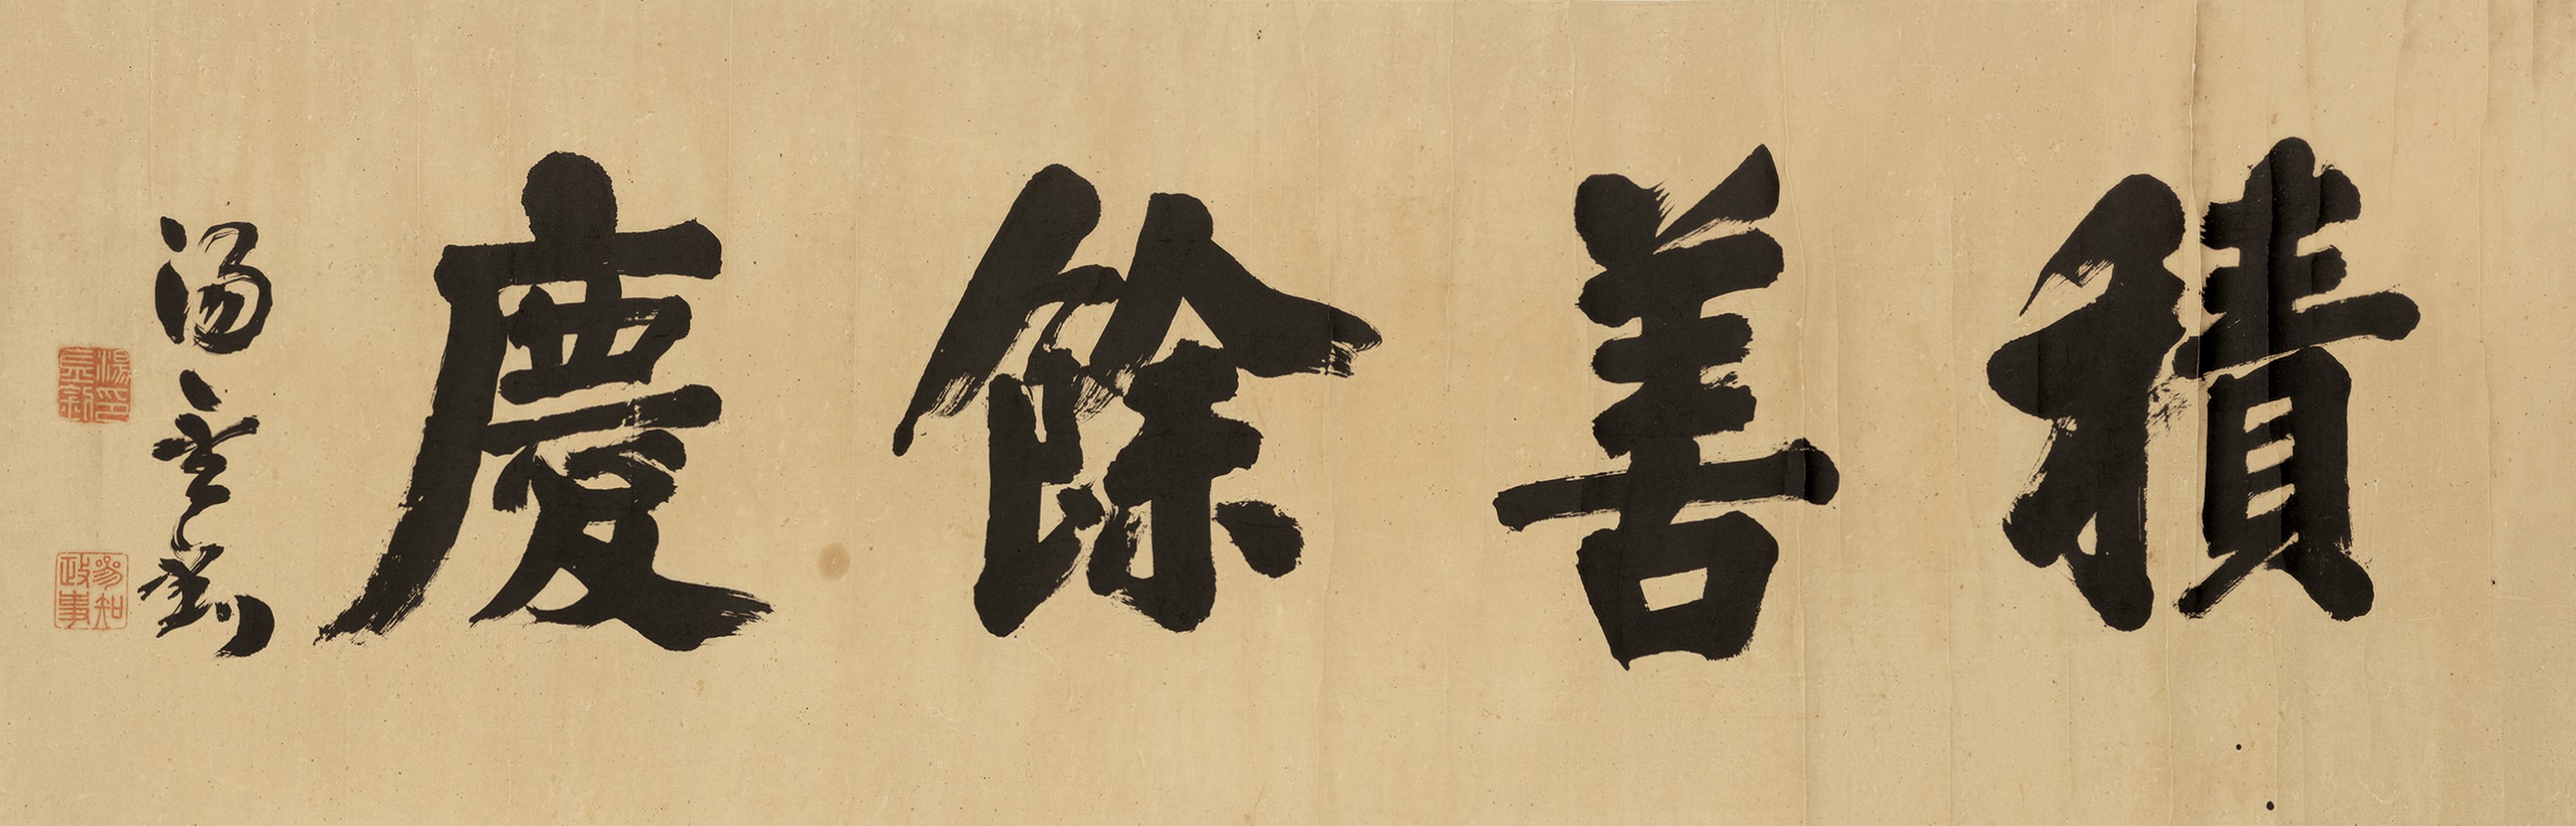 積善餘慶
湯金釗
湯印金釗
參知政事